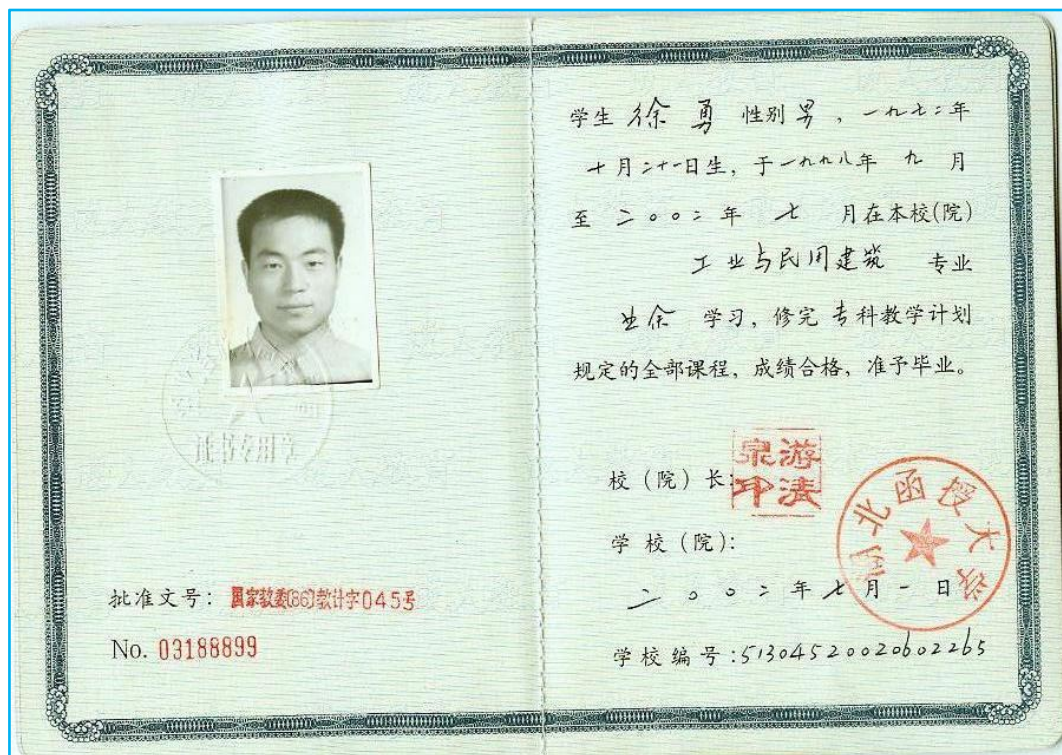 证书专用章
批准文号：国家教委(86)教计字045号
No. 03188899
学生 徐勇 性别 男，一九七二年
十月二十一日生，于一九九八年 九 月
至 二〇〇二 年 七 月在本校(院)
工业与民用建筑 专业
业余 学习，修完 专科教学计划
规定的全部课程，成绩合格，准予毕业。
校（院）长：
游清泉印
学校（院）：
湖北函授大学
二〇〇二年七月一日
学校编号：51304520020602265